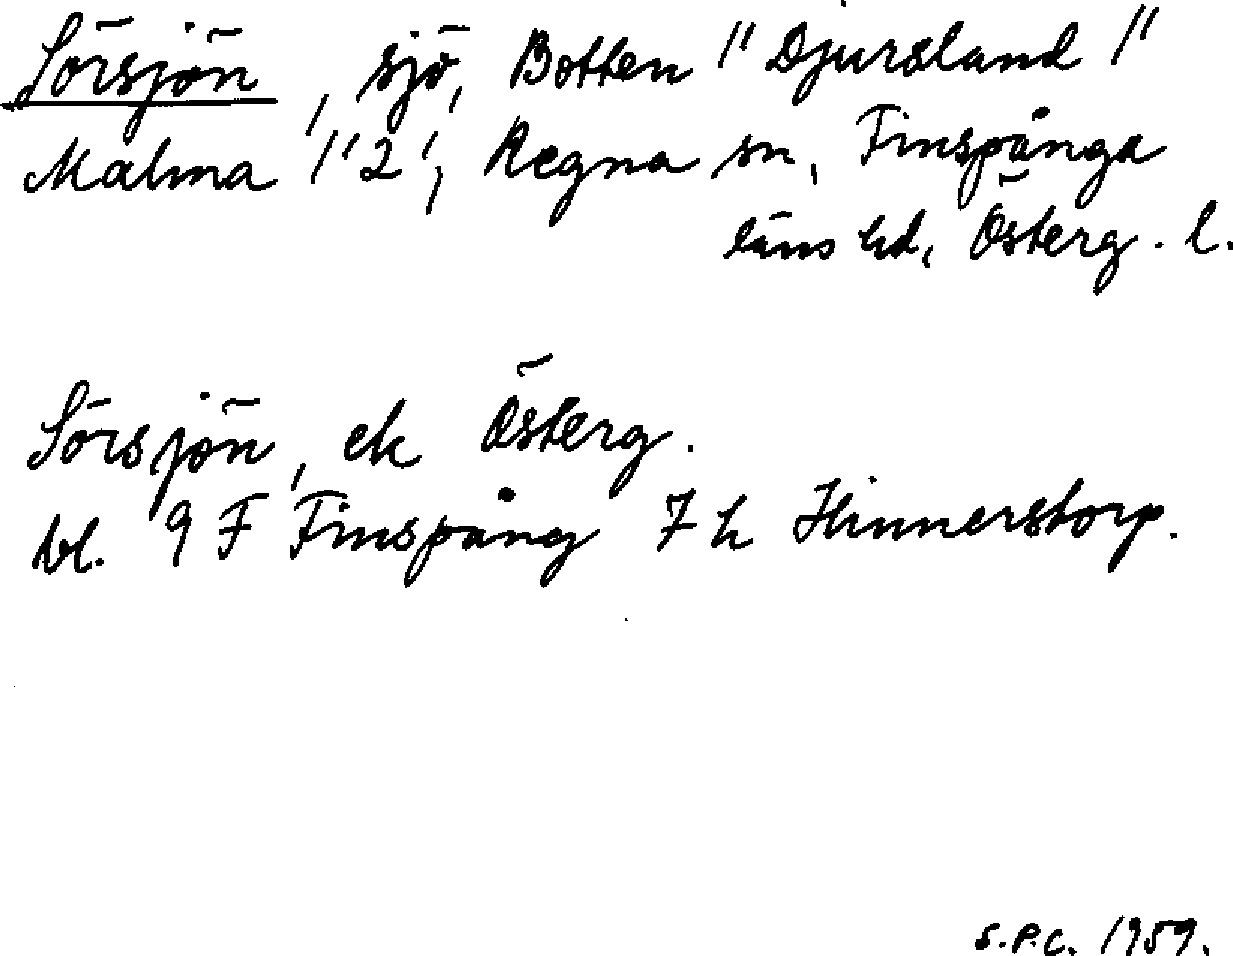 Sörsjön, sjö, Botten "Djursland"
Malma 1'2', Regna sn, Finspånga
läns hd, Österg. l.
Sörsjön, ek Österg.
bl. 9 F Finspång 7 h Hinnerstorp.
S.P.C. 1959.